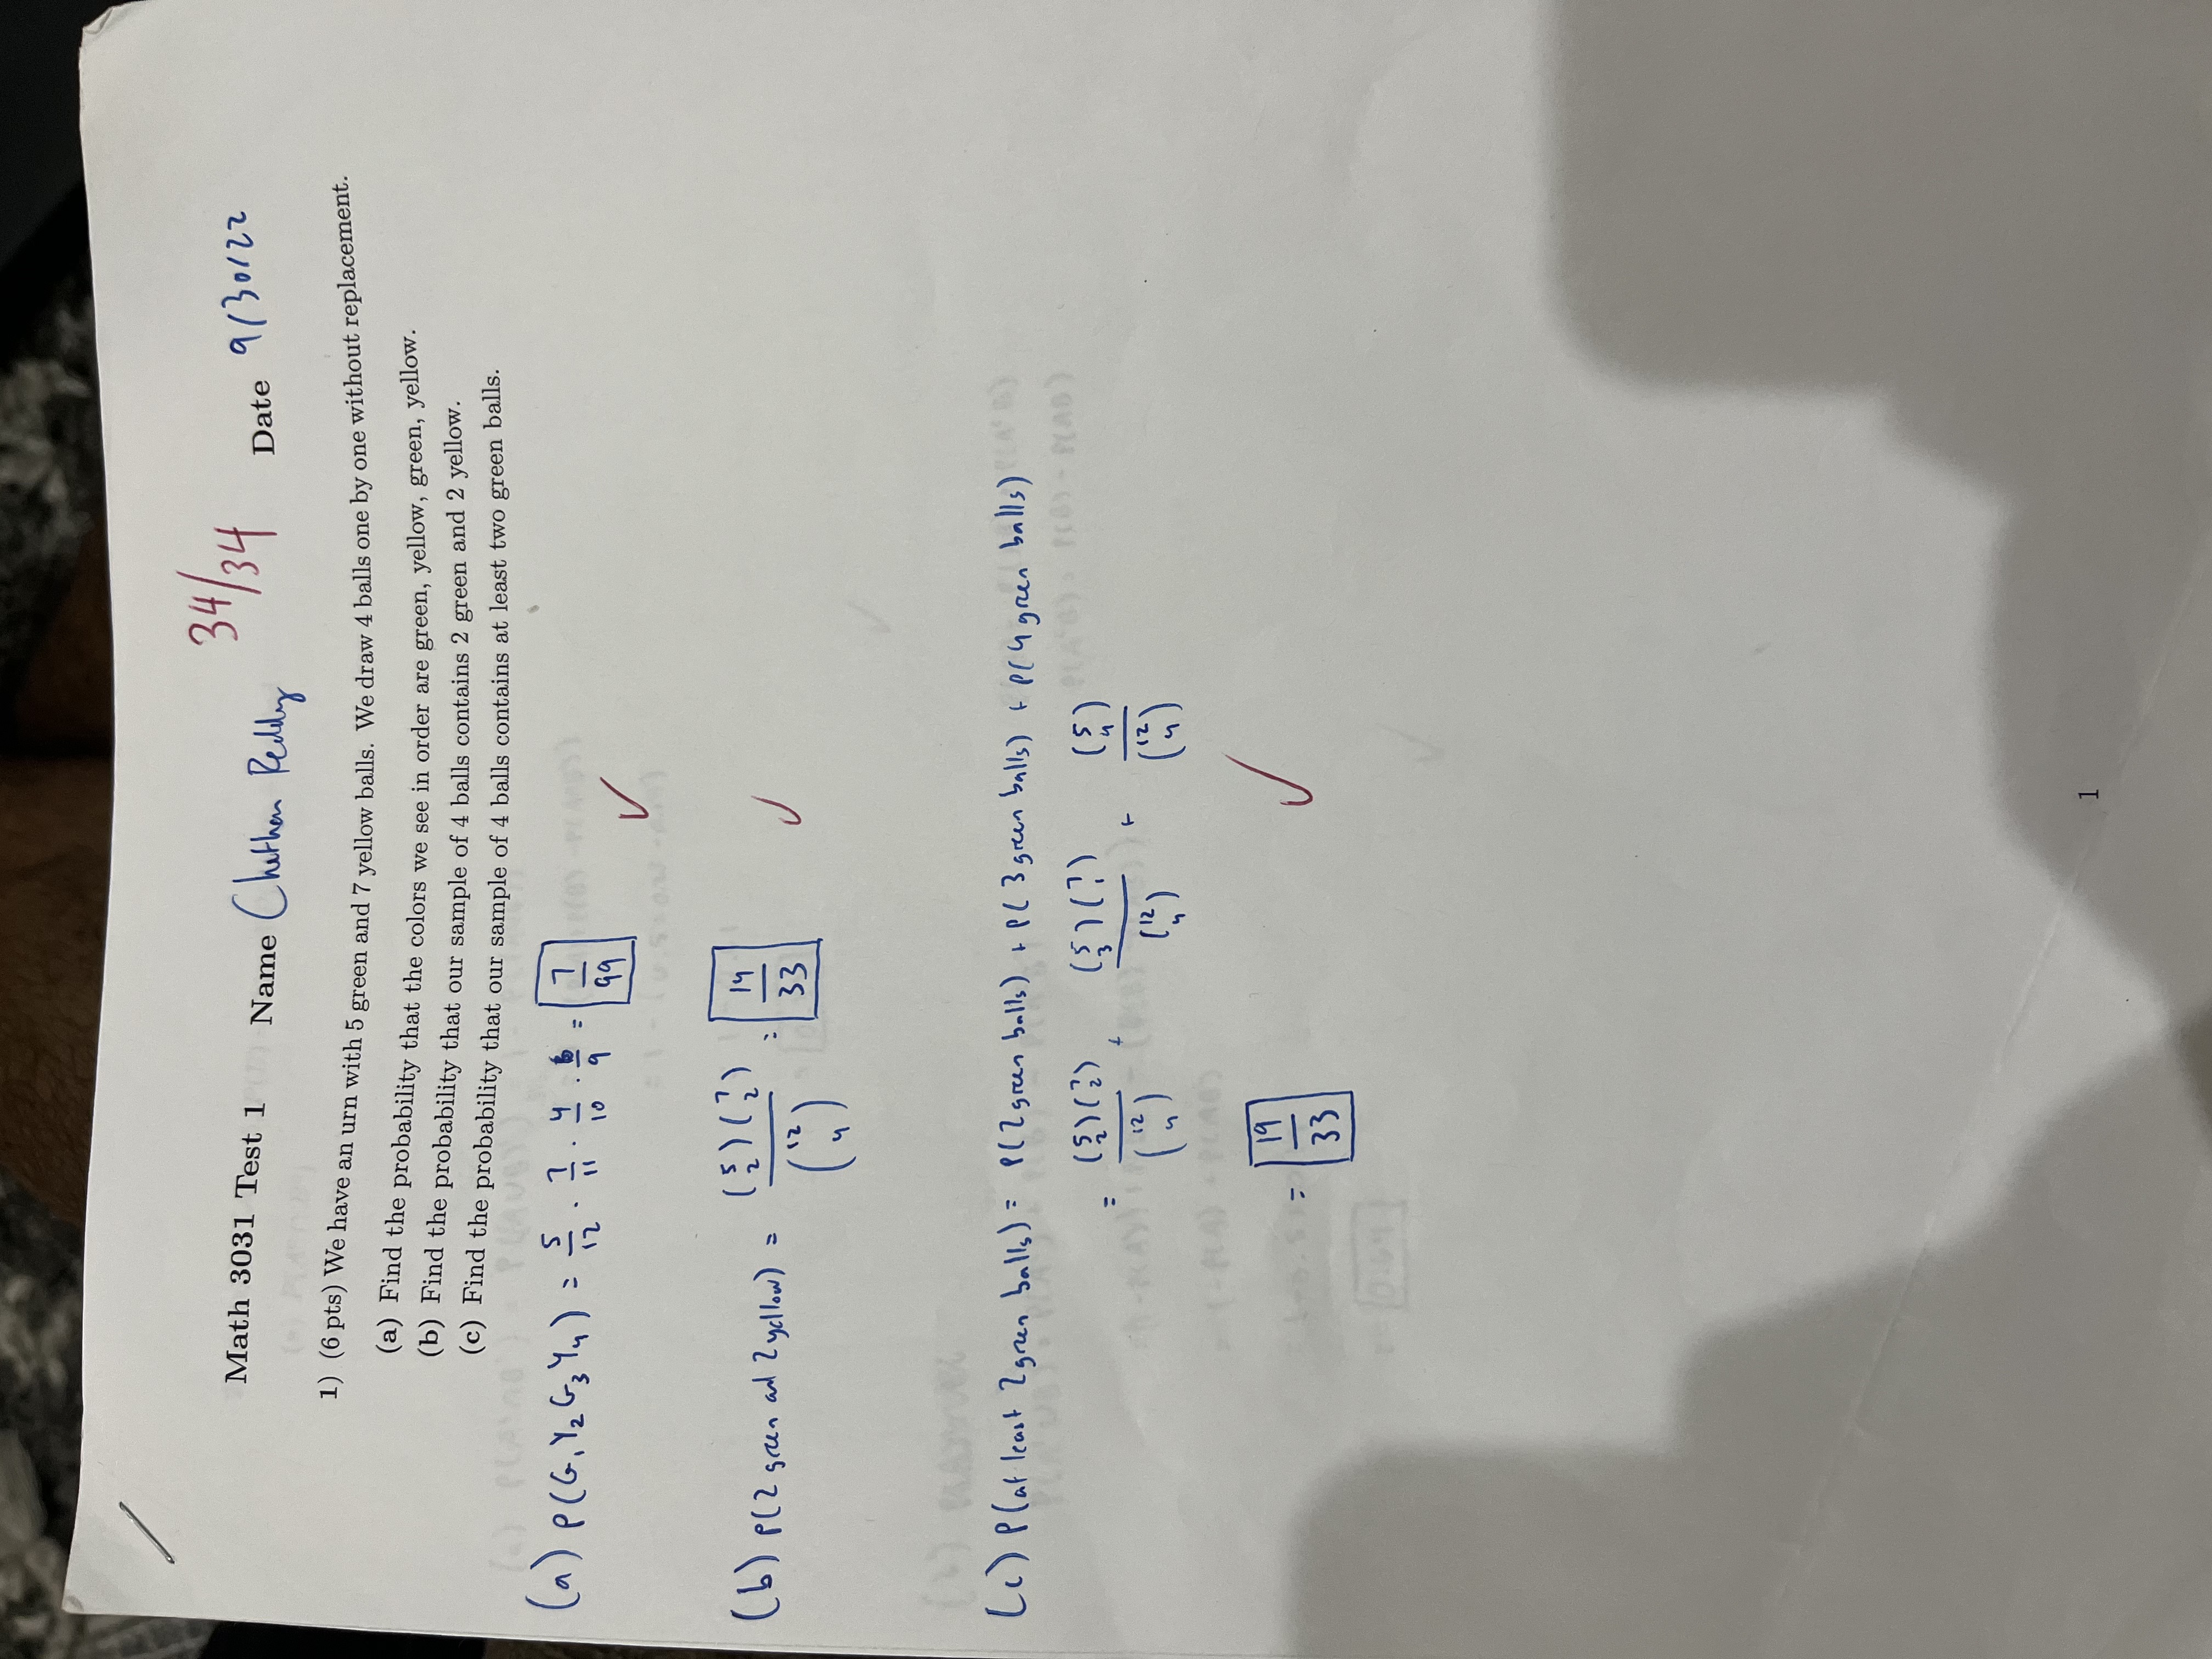 34/34
Math 3031 Test 1 Name Chethan Reddy Date 9/30/22
1) (6 pts) We have an urn with 5 green and 7 yellow balls. We draw 4 balls one by one without replacement.
(a) Find the probability that the colors we see in order are green, yellow, green, yellow.
(b) Find the probability that our sample of 4 balls contains 2 green and 2 yellow.
(c) Find the probability that our sample of 4 balls contains at least two green balls.
(a) P(G₁Y₂G₃Y₄) = 5/12 · 7/11 · 4/10 · 6/9 = 7/99 ✓
(b) P(2 green and 2 yellow) = (5 2)(7 2)/(12 4) = 14/33 ✓
(c) P(at least 2 green balls) = P(2 green balls) + P(3 green balls) + P(4 green balls)
= (5 2)(7 2)/(12 4) + (5 3)(7 1)/(12 4) + (5 4)/(12 4)
= 19/33 ✓
1